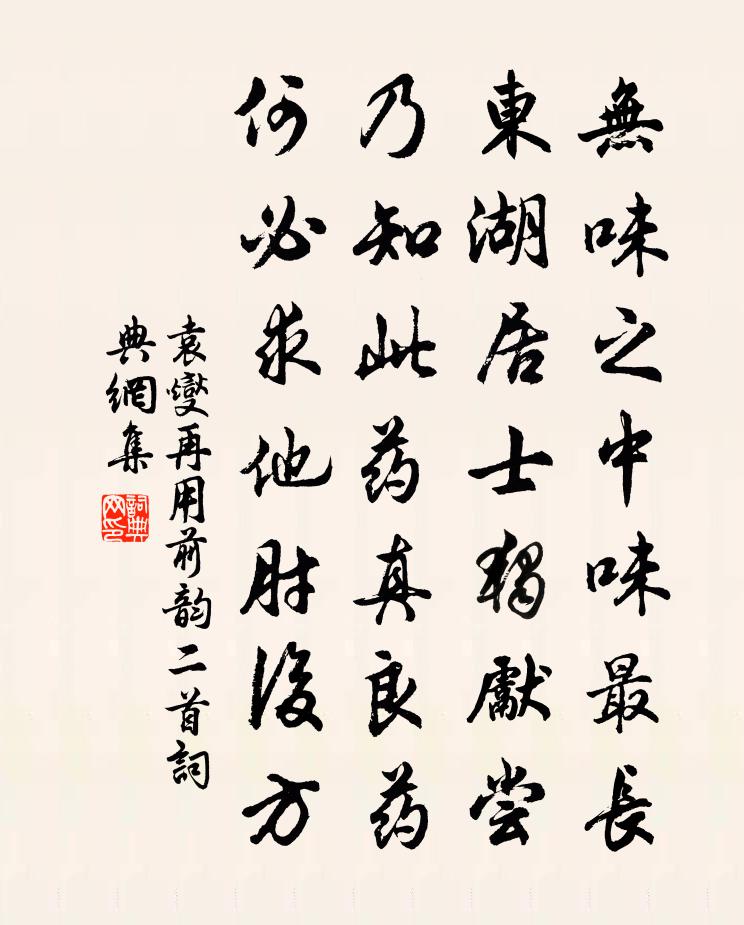 無味之中味最長
東湖居士獨獻尝
乃知此药真良药
何必求他肘後方
袁燮再用前韵二首詞
典網集
詞典
网印